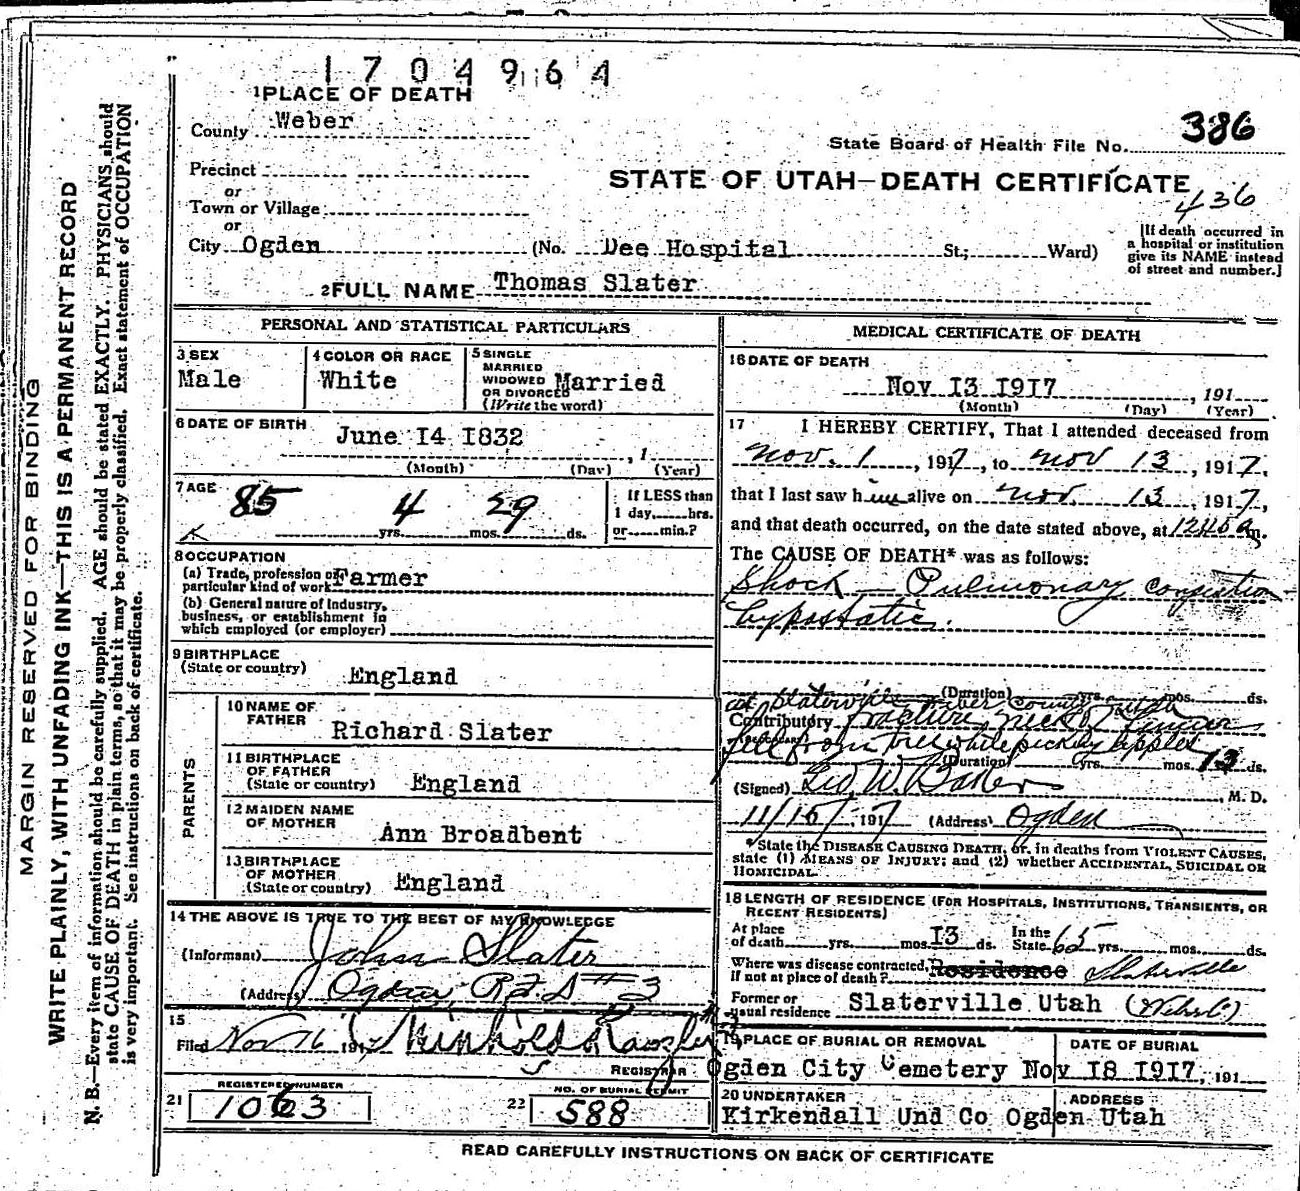 1704964
1 PLACE OF DEATH
County Weber
State Board of Health File No. 386
Precinct
or
STATE OF UTAH—DEATH CERTIFICATE
436
Town or Village
or
City Ogden (No. Dee Hospital St; Ward)
[If death occurred in
a hospital or institution
give its NAME instead
of street and number.]
2 FULL NAME Thomas Slater
MARGIN RESERVED FOR BINDING
WRITE PLAINLY, WITH UNFADING INK—THIS IS A PERMANENT RECORD
N. B.—Every item of information should be carefully supplied. AGE should be stated EXACTLY. PHYSICIANS should
state CAUSE OF DEATH in plain terms, so that it may be properly classified. Exact statement of OCCUPATION
is very important. See instructions on back of certificate.
PERSONAL AND STATISTICAL PARTICULARS
3 SEX
Male
4 COLOR OR RACE
White
5 SINGLE
MARRIED
WIDOWED
OR DIVORCED
(Write the word)
Married
6 DATE OF BIRTH
June 14 1832, 1
(Month) (Day) (Year)
7 AGE
85 yrs. 4 mos. 29 ds.
If LESS than
1 day, hrs.
or min.?
8 OCCUPATION
(a) Trade, profession or
particular kind of work Farmer
(b) General nature of Industry,
business, or establishment in
which employed (or employer)
9 BIRTHPLACE
(State or country)
England
PARENTS
10 NAME OF
FATHER
Richard Slater
11 BIRTHPLACE
OF FATHER
(State or country) England
12 MAIDEN NAME
OF MOTHER
Ann Broadbent
13 BIRTHPLACE
OF MOTHER
(State or country) England
14 THE ABOVE IS TRUE TO THE BEST OF MY KNOWLEDGE
(Informant) John Slater
(Address) Ogden, R.F.D #3
15
Filed Nov 16 1917
REGISTRAR
21 REGISTERED NUMBER
1063
22 NO. OF BURIAL PERMIT
588
MEDICAL CERTIFICATE OF DEATH
16 DATE OF DEATH
Nov 13 1917, 191
(Month) (Day) (Year)
17 I HEREBY CERTIFY, That I attended deceased from
Nov. 1, 1917, to Nov 13, 1917,
that I last saw him alive on Nov. 13, 1917,
and that death occurred, on the date stated above, at 1245 a m.
The CAUSE OF DEATH* was as follows:
Shock — Pulmonary congestion
hypostatic.
(Duration) yrs. mos. ds.
at Slaterville Weber County Utah
Contributory fracture neck of femur
fell from tree while picking apples
(Duration) yrs. mos. 13 ds.
(Signed) Geo. W. Baker, M. D.
11/16/, 1917 (Address) Ogden
*State the DISEASE CAUSING DEATH, or, in deaths from VIOLENT CAUSES,
state (1) MEANS OF INJURY; and (2) whether ACCIDENTAL, SUICIDAL OR
HOMICIDAL.
18 LENGTH OF RESIDENCE (FOR HOSPITALS, INSTITUTIONS, TRANSIENTS, OR
RECENT RESIDENTS)
At place
of death yrs. mos. 13 ds.
In the
State 65 yrs. mos. ds.
Where was disease contracted,
If not at place of death? Residence Slaterville
Former or
usual residence Slaterville Utah (Weber Co)
19 PLACE OF BURIAL OR REMOVAL
Ogden City Cemetery
DATE OF BURIAL
Nov 18 1917, 191
20 UNDERTAKER
Kirkendall Und Co
ADDRESS
Ogden Utah
READ CAREFULLY INSTRUCTIONS ON BACK OF CERTIFICATE